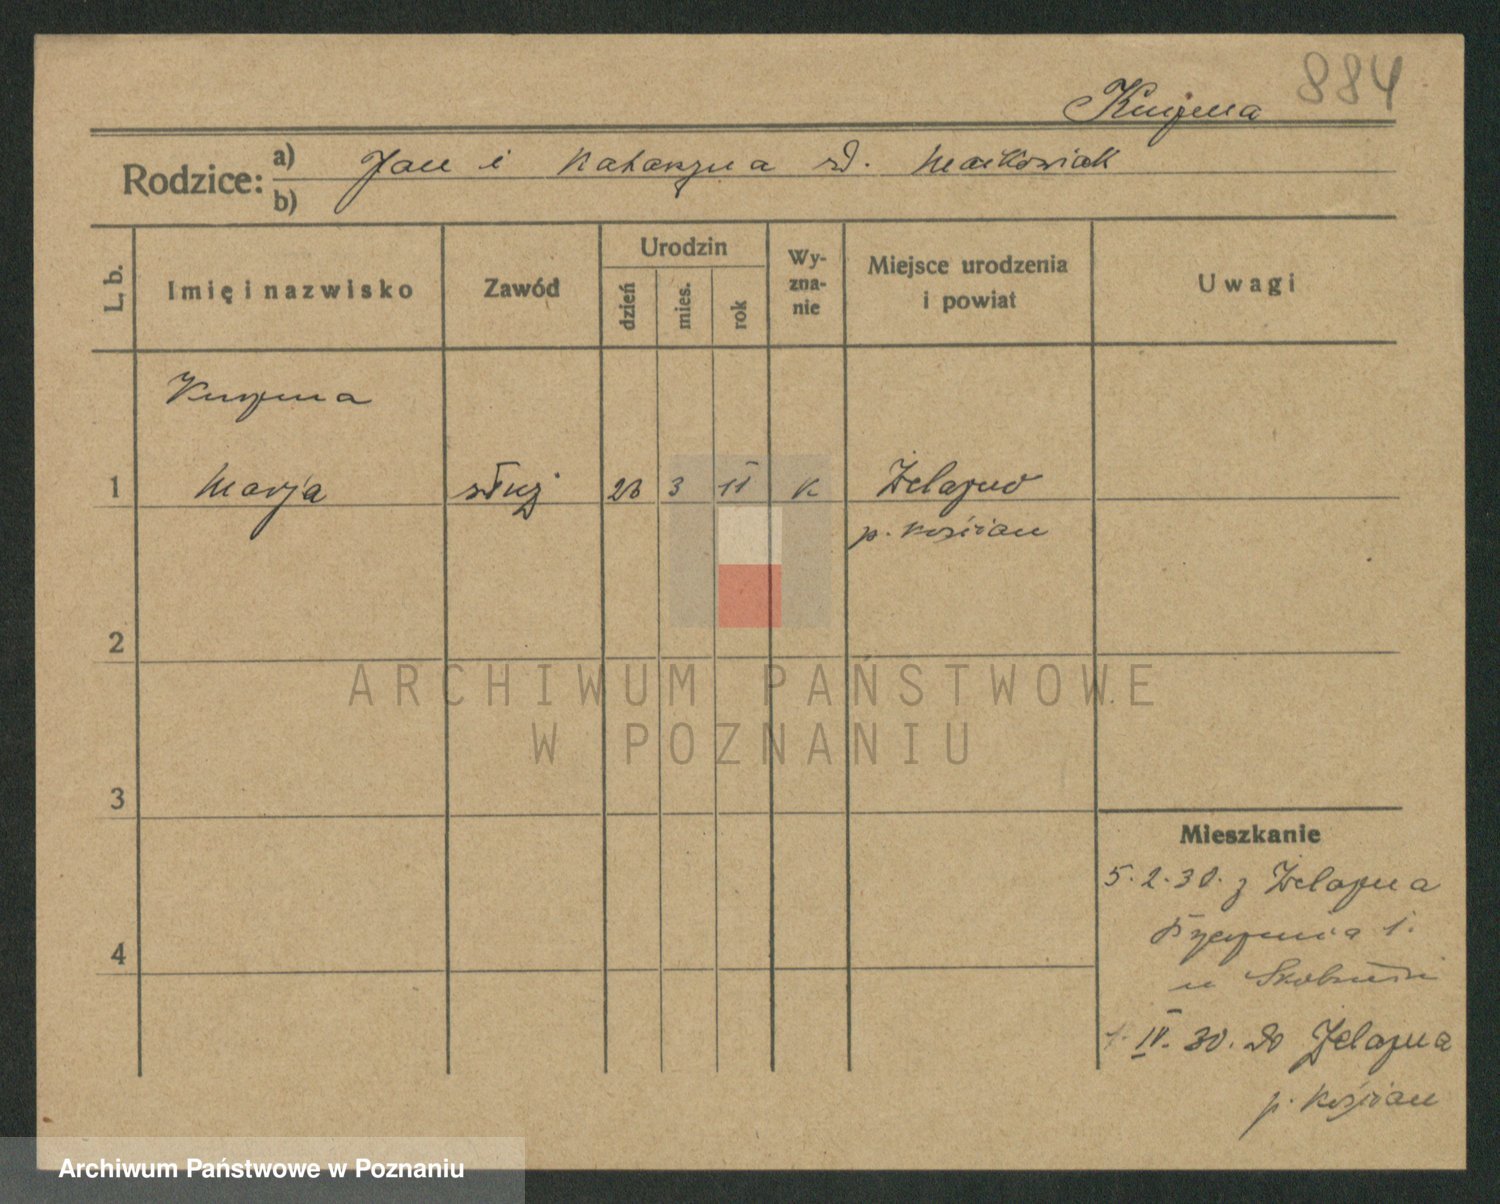 884
Rodzice:
a) Jan i Katarzyna zd. Markowiak
b)
L. b.
Imię i nazwisko
Zawód
Urodzin
dzień
mies.
rok
Wy-
zna-
nie
Miejsce urodzenia
i powiat
Uwagi
1
Marja
służ
3
11
K
Żelazno
p. Kościan
2
3
4
Mieszkanie
5.2.30. z Żelazna
1.
u
IV. 30. do Żelazna
p. Kościan
ARCHIWUM PAŃSTWOWE
W POZNANIU
Archiwum Państwowe w Poznaniu